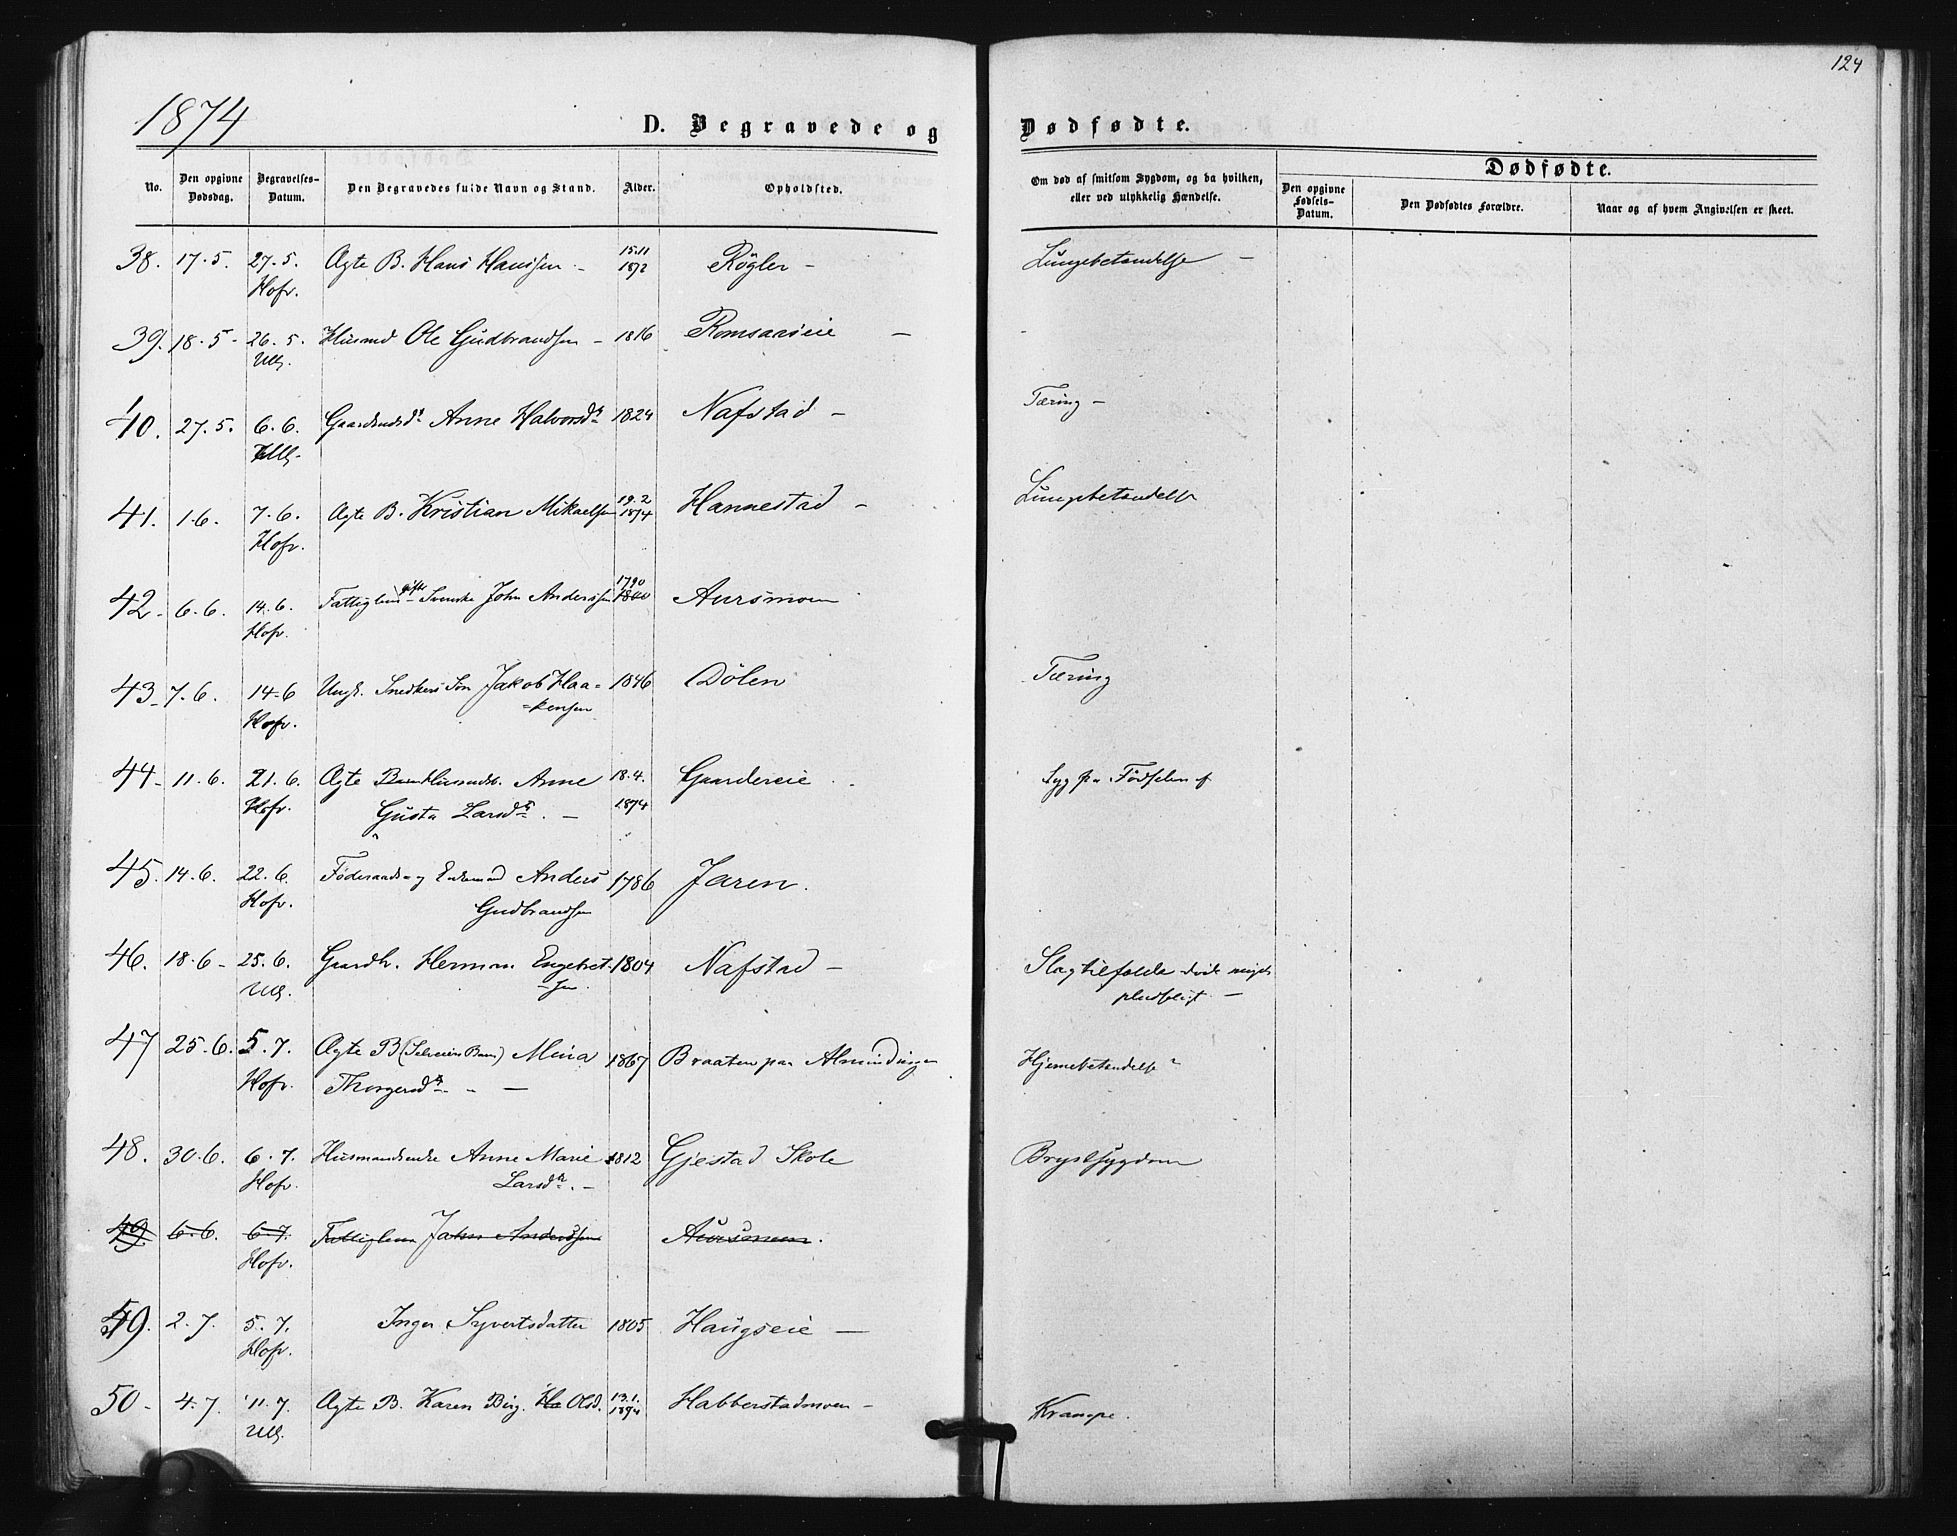 124
1874
D. Begravede og Dødfødte.
Dødfødte.
No. Den opgivne Dødsdag. Begravelses-Datum. Den Begravedes fulde Navn og Stand. Alder. Opholdsted. Om død af smitsom Sygdom, og da hvilken, eller ved ulykkelig Hændelse. Den opgivne Fødsels-Datum. Den Dødfødtes Forældre. Naar og af hvem Angivelsen er skeet.
38. 17.5. 27.5. Ægte B. Hans Hanssen - 15.11 1872 Røgler - Lungebetændelse -
Hofv.
39. 18.5- 26.5. Husmd Ole Gudbrandsen - 1816 Romsaaseie -
Ull.
40. 27.5. 6.6. Anne Halvorsdr 1824 Nafstad - Tæring -
Ull.
41. 1.6. 7.6. Ægte B. Kristian Mikaelsen 19.2 1874 Hannestad - Lungebetændelse
Hofv.
42- 6.6. 14.6. Fattiglem gift Svenske John Anderssen 1790 1800 Aursmoen
Hofv.
43- 7.6. 14.6 Ungk. Snedkers Søn Jakob Haa= 1846 Dølen Tæring
Hofv. =kensen
44- 11.6. 21.6. Ægte Barn Husmds. Anne 18.4. 1874 Gaardereie Syg fra Fødselen af
Hofv. Gusta Larsdr. -
45. 14.6. 22.6. Føderaads- og Enkemand Anders 1786 Jaren.
Hofv. Gudbrandsen
46. 18.6- 25.6. Gaardbr. Herman Engebret- 1804 Nafstad - Slagtilfælde døde meget
Ull. -sen. pludseligt. -
47 25.6. 5.7. Ægte B (Selveiers Barn) Mina 1867 Braaten paa Almindingen Hjernebetændelse?
Hofv. Thorgersdr - -
48. 30.6. 6.7. Husmandsenke Anne Marie 1812 Gjestad Skole Brystsygdom
Hofv. Larsdr. -
49. 6.6. 6.7. Fattiglem John Anderssen Aursmoen.
Hofv.
49. 2.7. 5.7. Inger Syvertsdatter 1805 Haugseie -
Hofv.
50- 4.7. 11.7 Ægte B. Karen Birg. Ha Olsd. 13.1. 1874 Habberstadmoen - Krampe.
Ull.